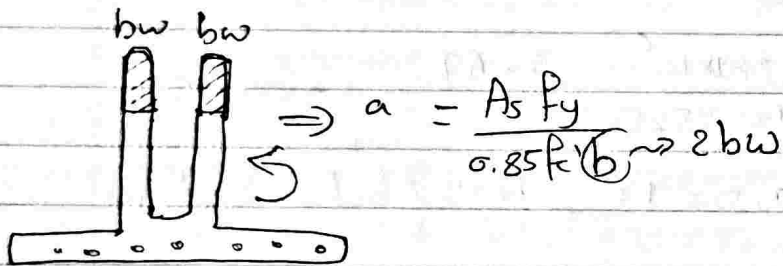 bw bw
⇒ a = As fy / 0.85fc' b ⇝ 2bw